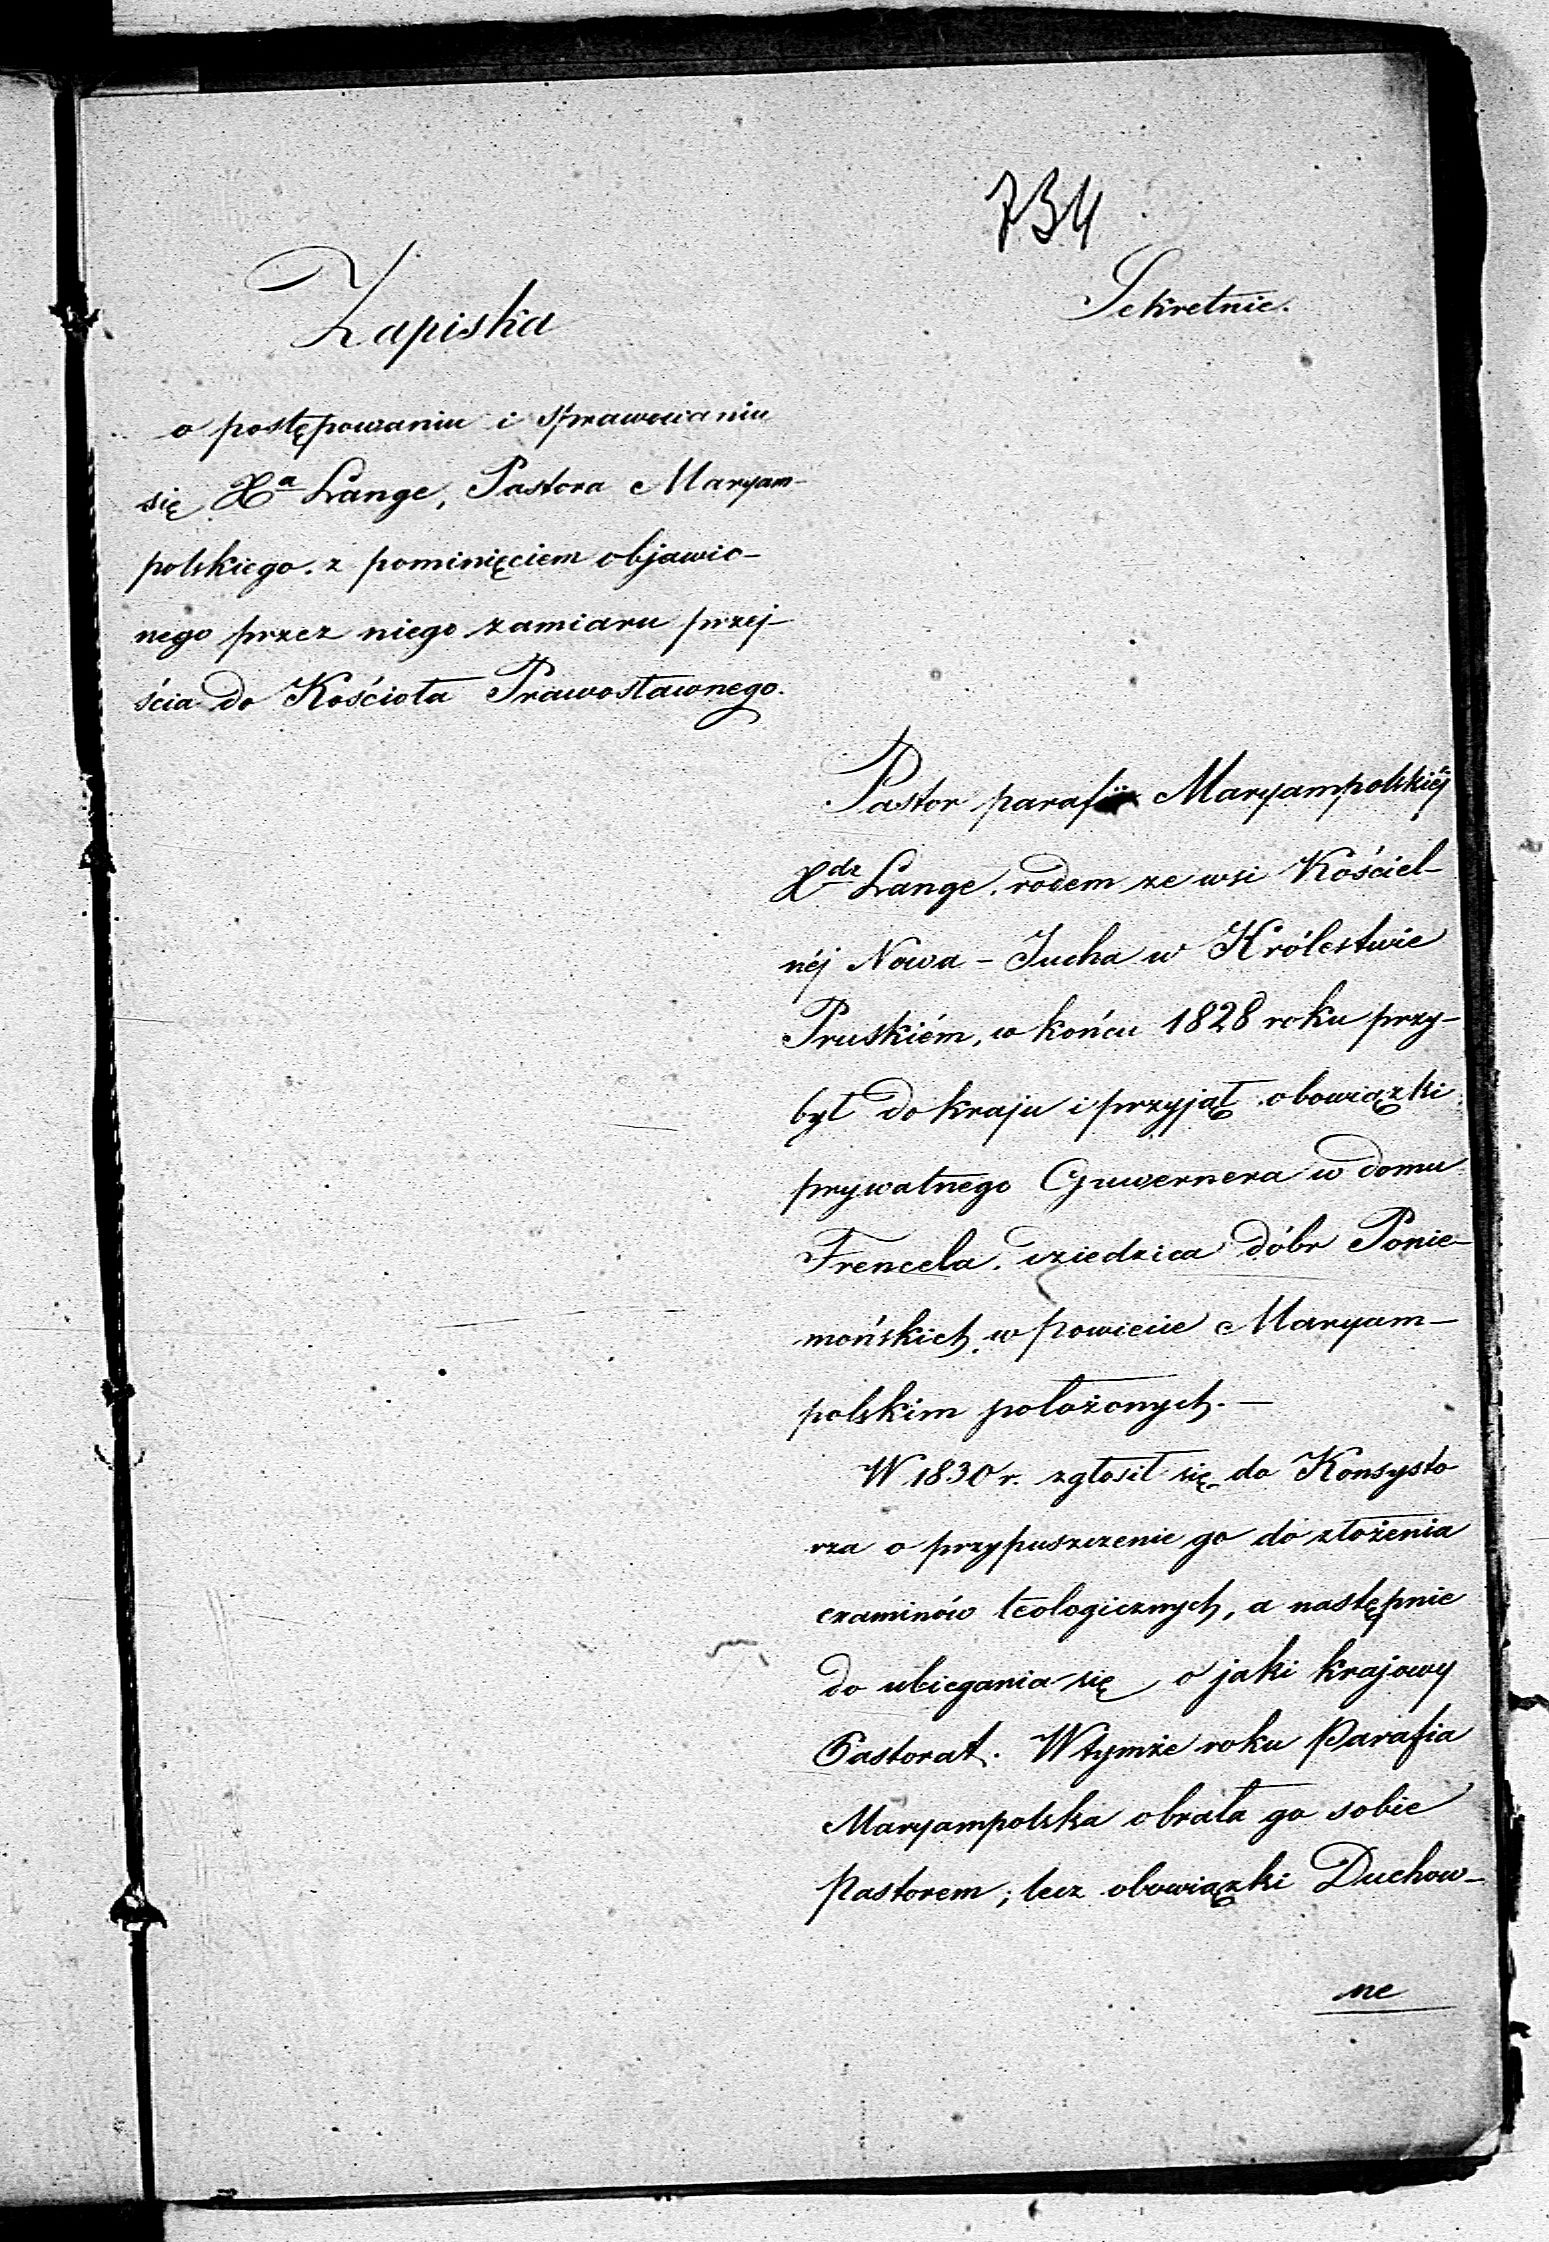 734
Sekretnie.
Zapiska
o postępowaniu i sprawowaniu
się Xa Lange, Pastora Maryam-
polskiego. z pominięciem objawio-
nego przez niego zamiaru przej-
ścia do Kościoła Prawosławnego.
Pastor parafii Maryampolskiéj
Xdz Lange. rodem ze wsi Kościel-
néj Nowa - Jucha w Królestwie
Pruskiém, w końcu 1828 roku przy-
był do kraju i przyjął obowiązki
prywatnego Guwernera w domu
Frencela. dziedzica dóbr Ponie-
mońskich, w powiecie Maryam-
polskim położonych. —
W 1830 r. zgłosił się do Konsysto
rza o przypuszczenie go do złożenia
examinów teologicznych, a następnie
do ubiegania się o jaki krajowy
Pastorat. W tymże roku Parafia
Maryampolska obrała go sobie
Pastorem; lecz obowiązki Duchow-
ne